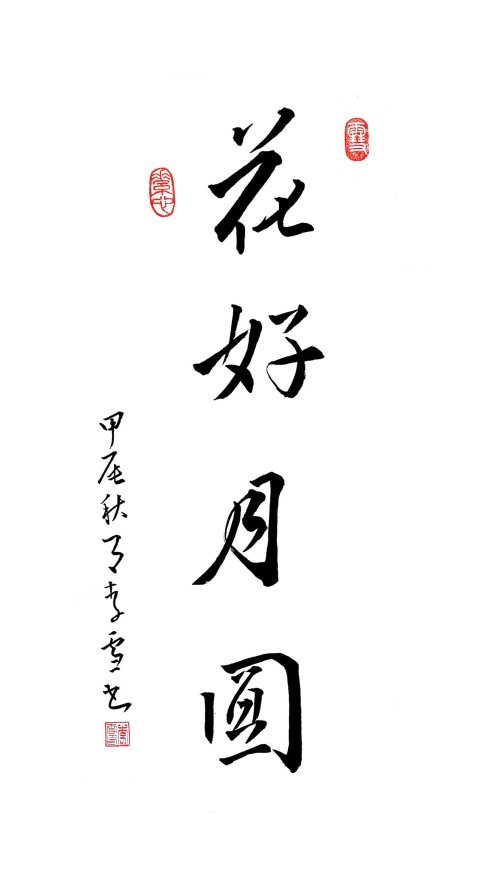 花好月圓
甲辰秋月李雪书